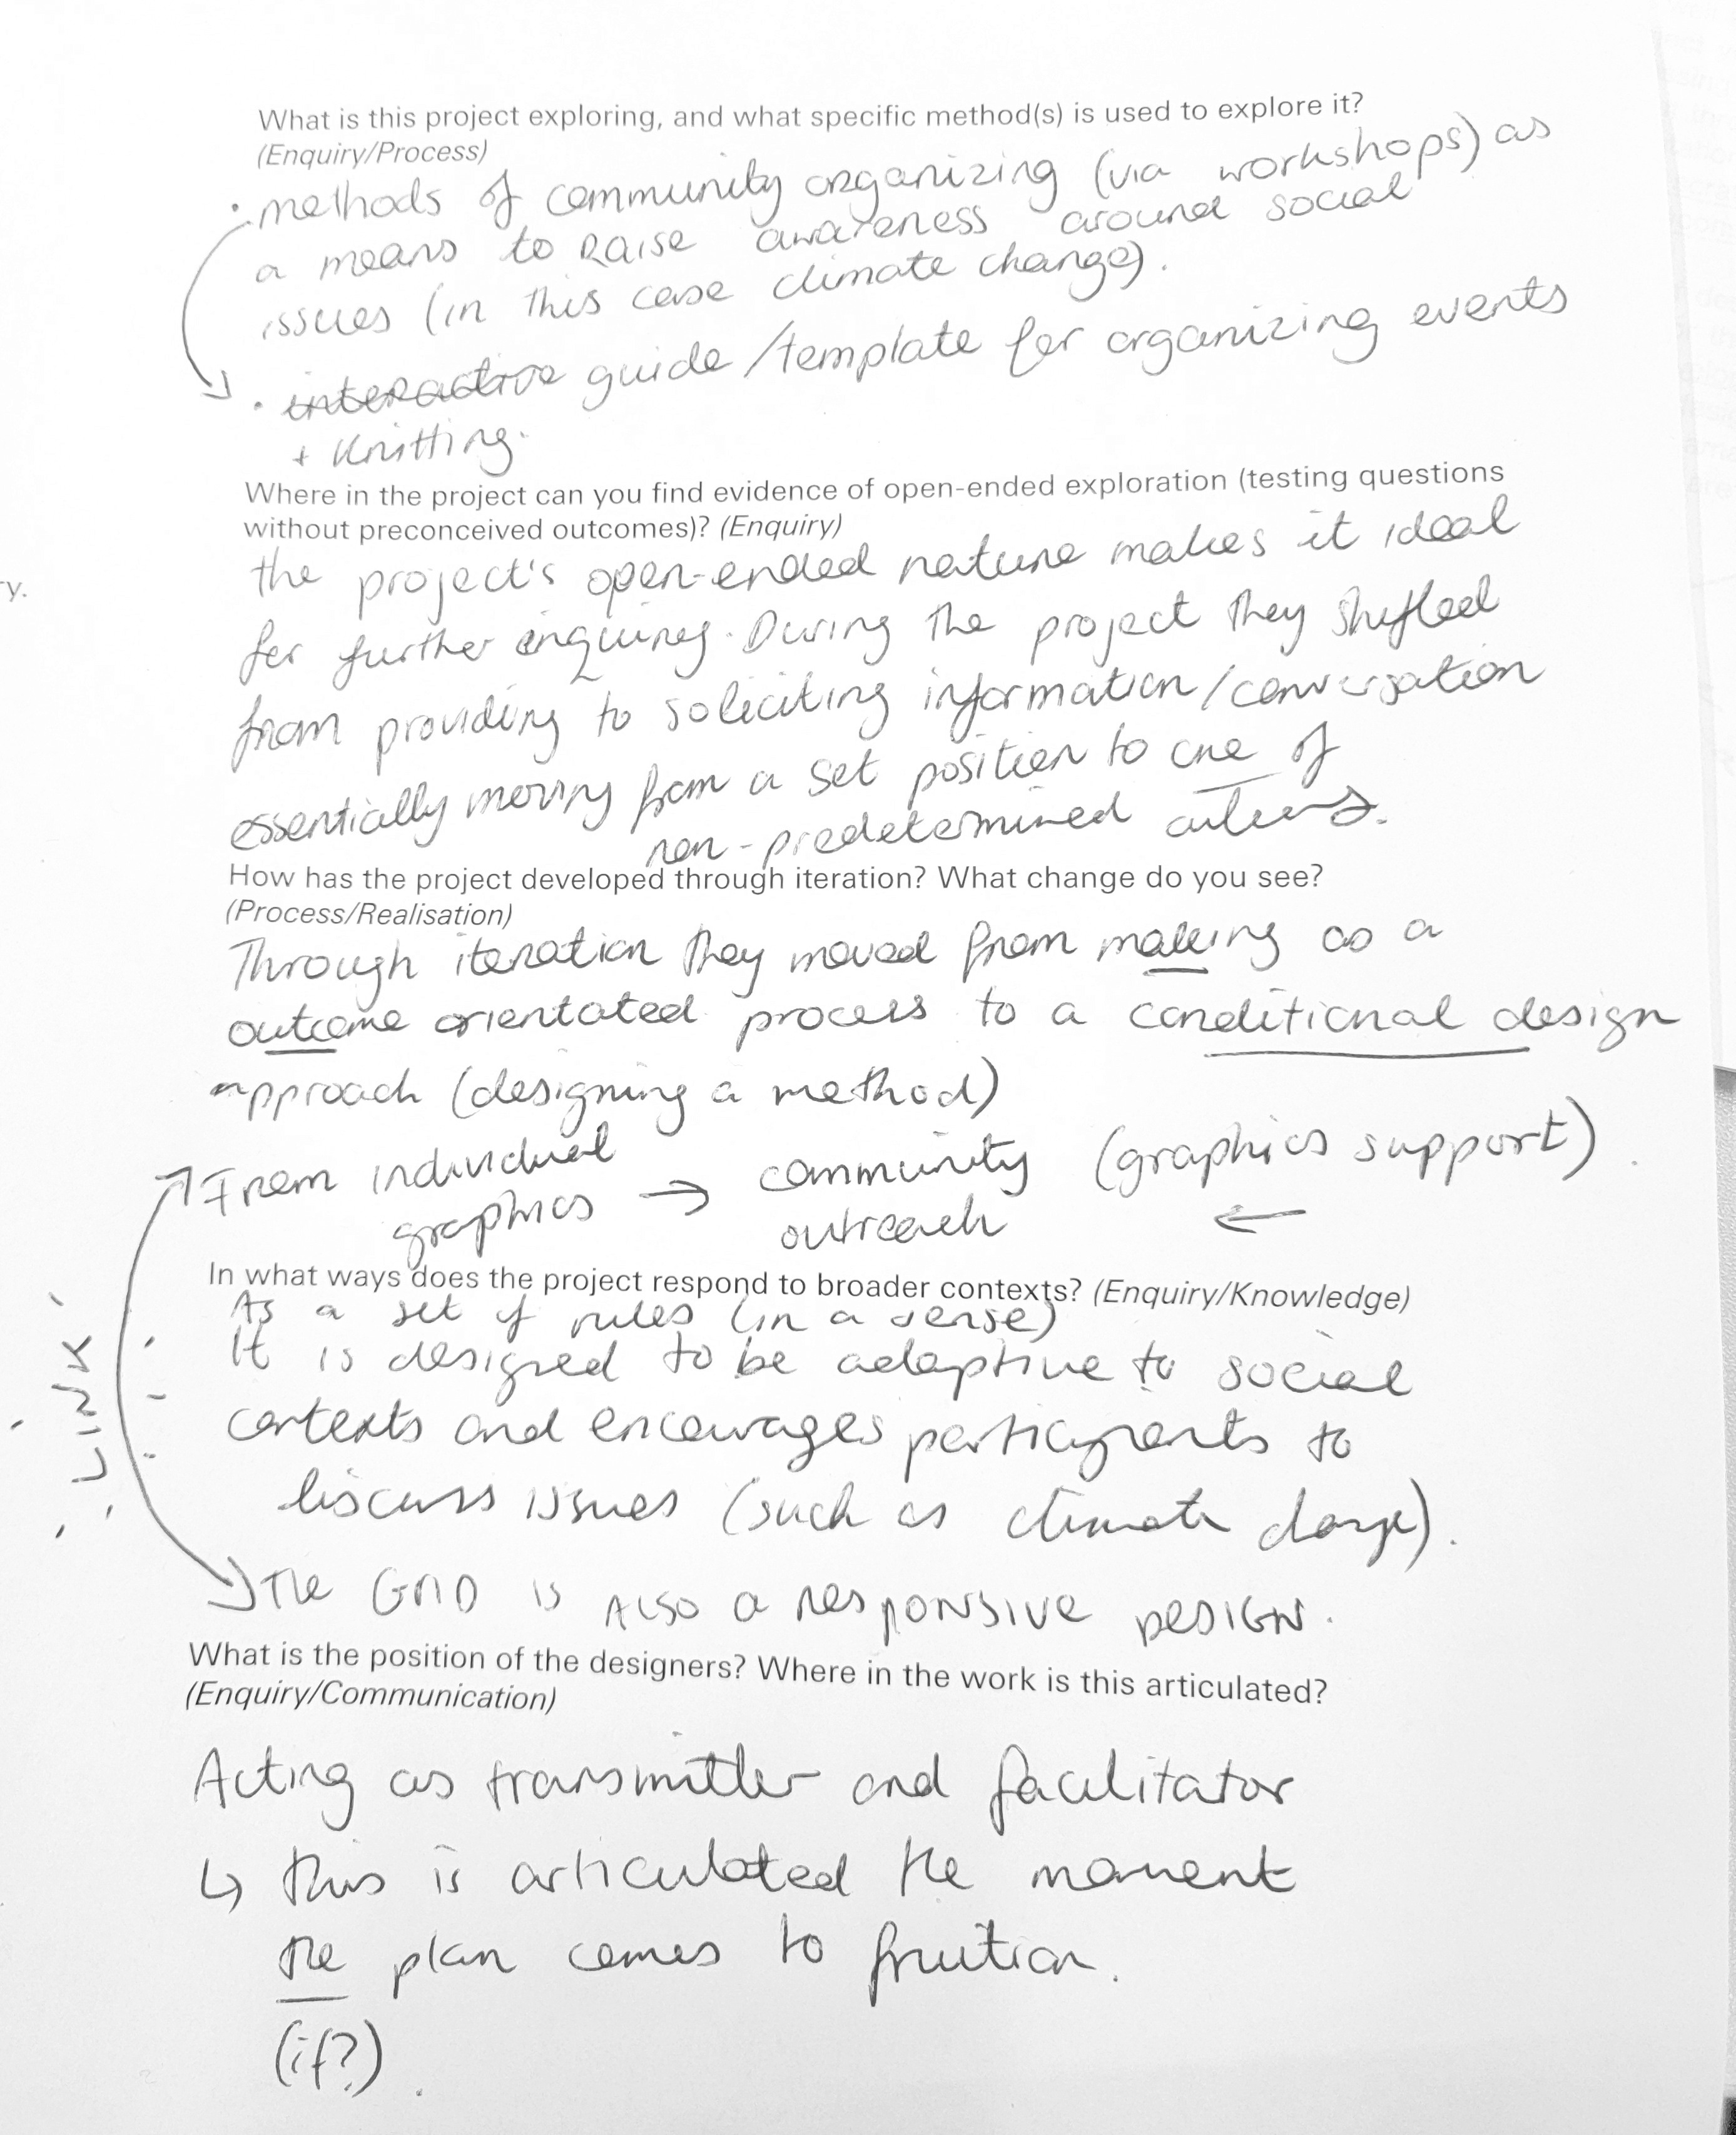 What is this project exploring, and what specific method(s) is used to explore it?
(Enquiry/Process)
· methods of community organizing (via workshops) as
a means to raise awareness around social
issues (in this case climate change).
· interactive guide/template for organizing events
+ knitting.
Where in the project can you find evidence of open-ended exploration (testing questions
without preconceived outcomes)? (Enquiry)
the project's open-ended nature makes it ideal
for further enquiry. During the project they shifted
from providing to soliciting information/conversation
essentially moving from a set position to one of
non-predetermined
How has the project developed through iteration? What change do you see?
(Process/Realisation)
Through iteration they moved from making as a
outcome orientated process to a conditional design
approach (designing a method)
From individual graphics → community outreach (graphics support).
←
In what ways does the project respond to broader contexts? (Enquiry/Knowledge)
As a set of rules (in a sense)
It is designed to be adaptive to social
contexts and encourages participants to
discuss issues (such as climate change).
LINK
The GRID is ALSO a responsive DESIGN.
What is the position of the designers? Where in the work is this articulated?
(Enquiry/Communication)
Acting as transmitter and facilitator
↳ this is articulated the moment
the plan comes to fruition.
(if?).
ry.